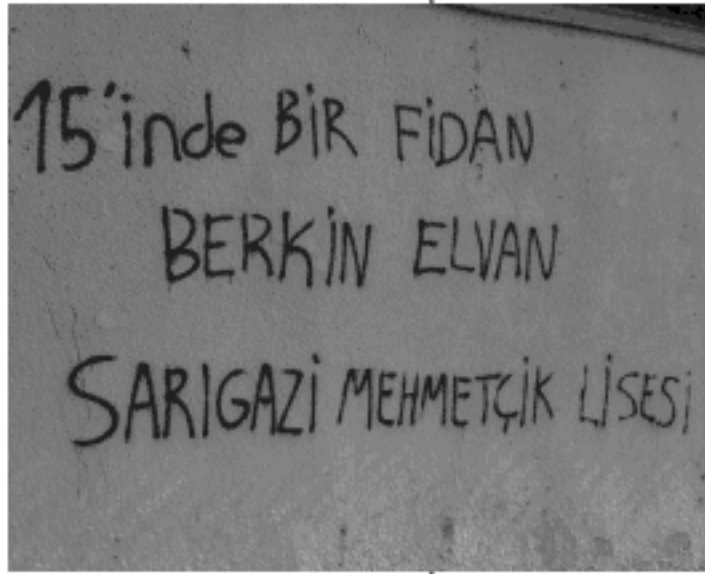 15'inde BİR FİDAN
BERKİN ELVAN
SARIGAZİ MEHMETÇİK LİSESİ